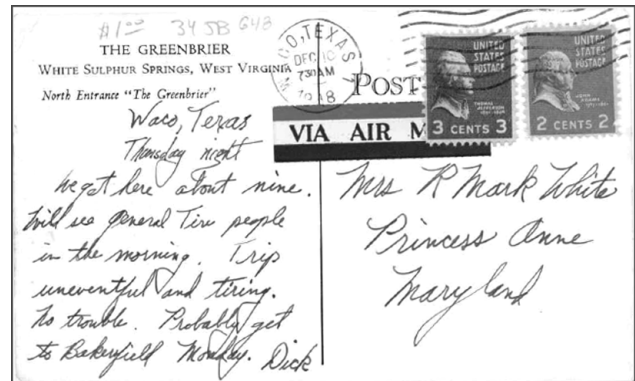 $1.00 34 5B G48
THE GREENBRIER
WHITE SULPHUR SPRINGS, WEST VIRGINIA
North Entrance "The Greenbrier"
CO, TEXAS
DEC 10
730AM
POST
VIA AIR M
UNITED
STATES
POSTAGE
THOMAS
JEFFERSON
3 CENTS 3
UNITED
STATES
POSTAGE
JOHN
ADAMS
2 CENTS 2
Waco, Texas
Thursday night
We got here about nine.
Will see General Tire people
in the morning. Trip
uneventful and tiring.
No trouble. Probably get
to Bakerfield Monday. Dick
Mrs R Mark White
Princess Anne
Maryland